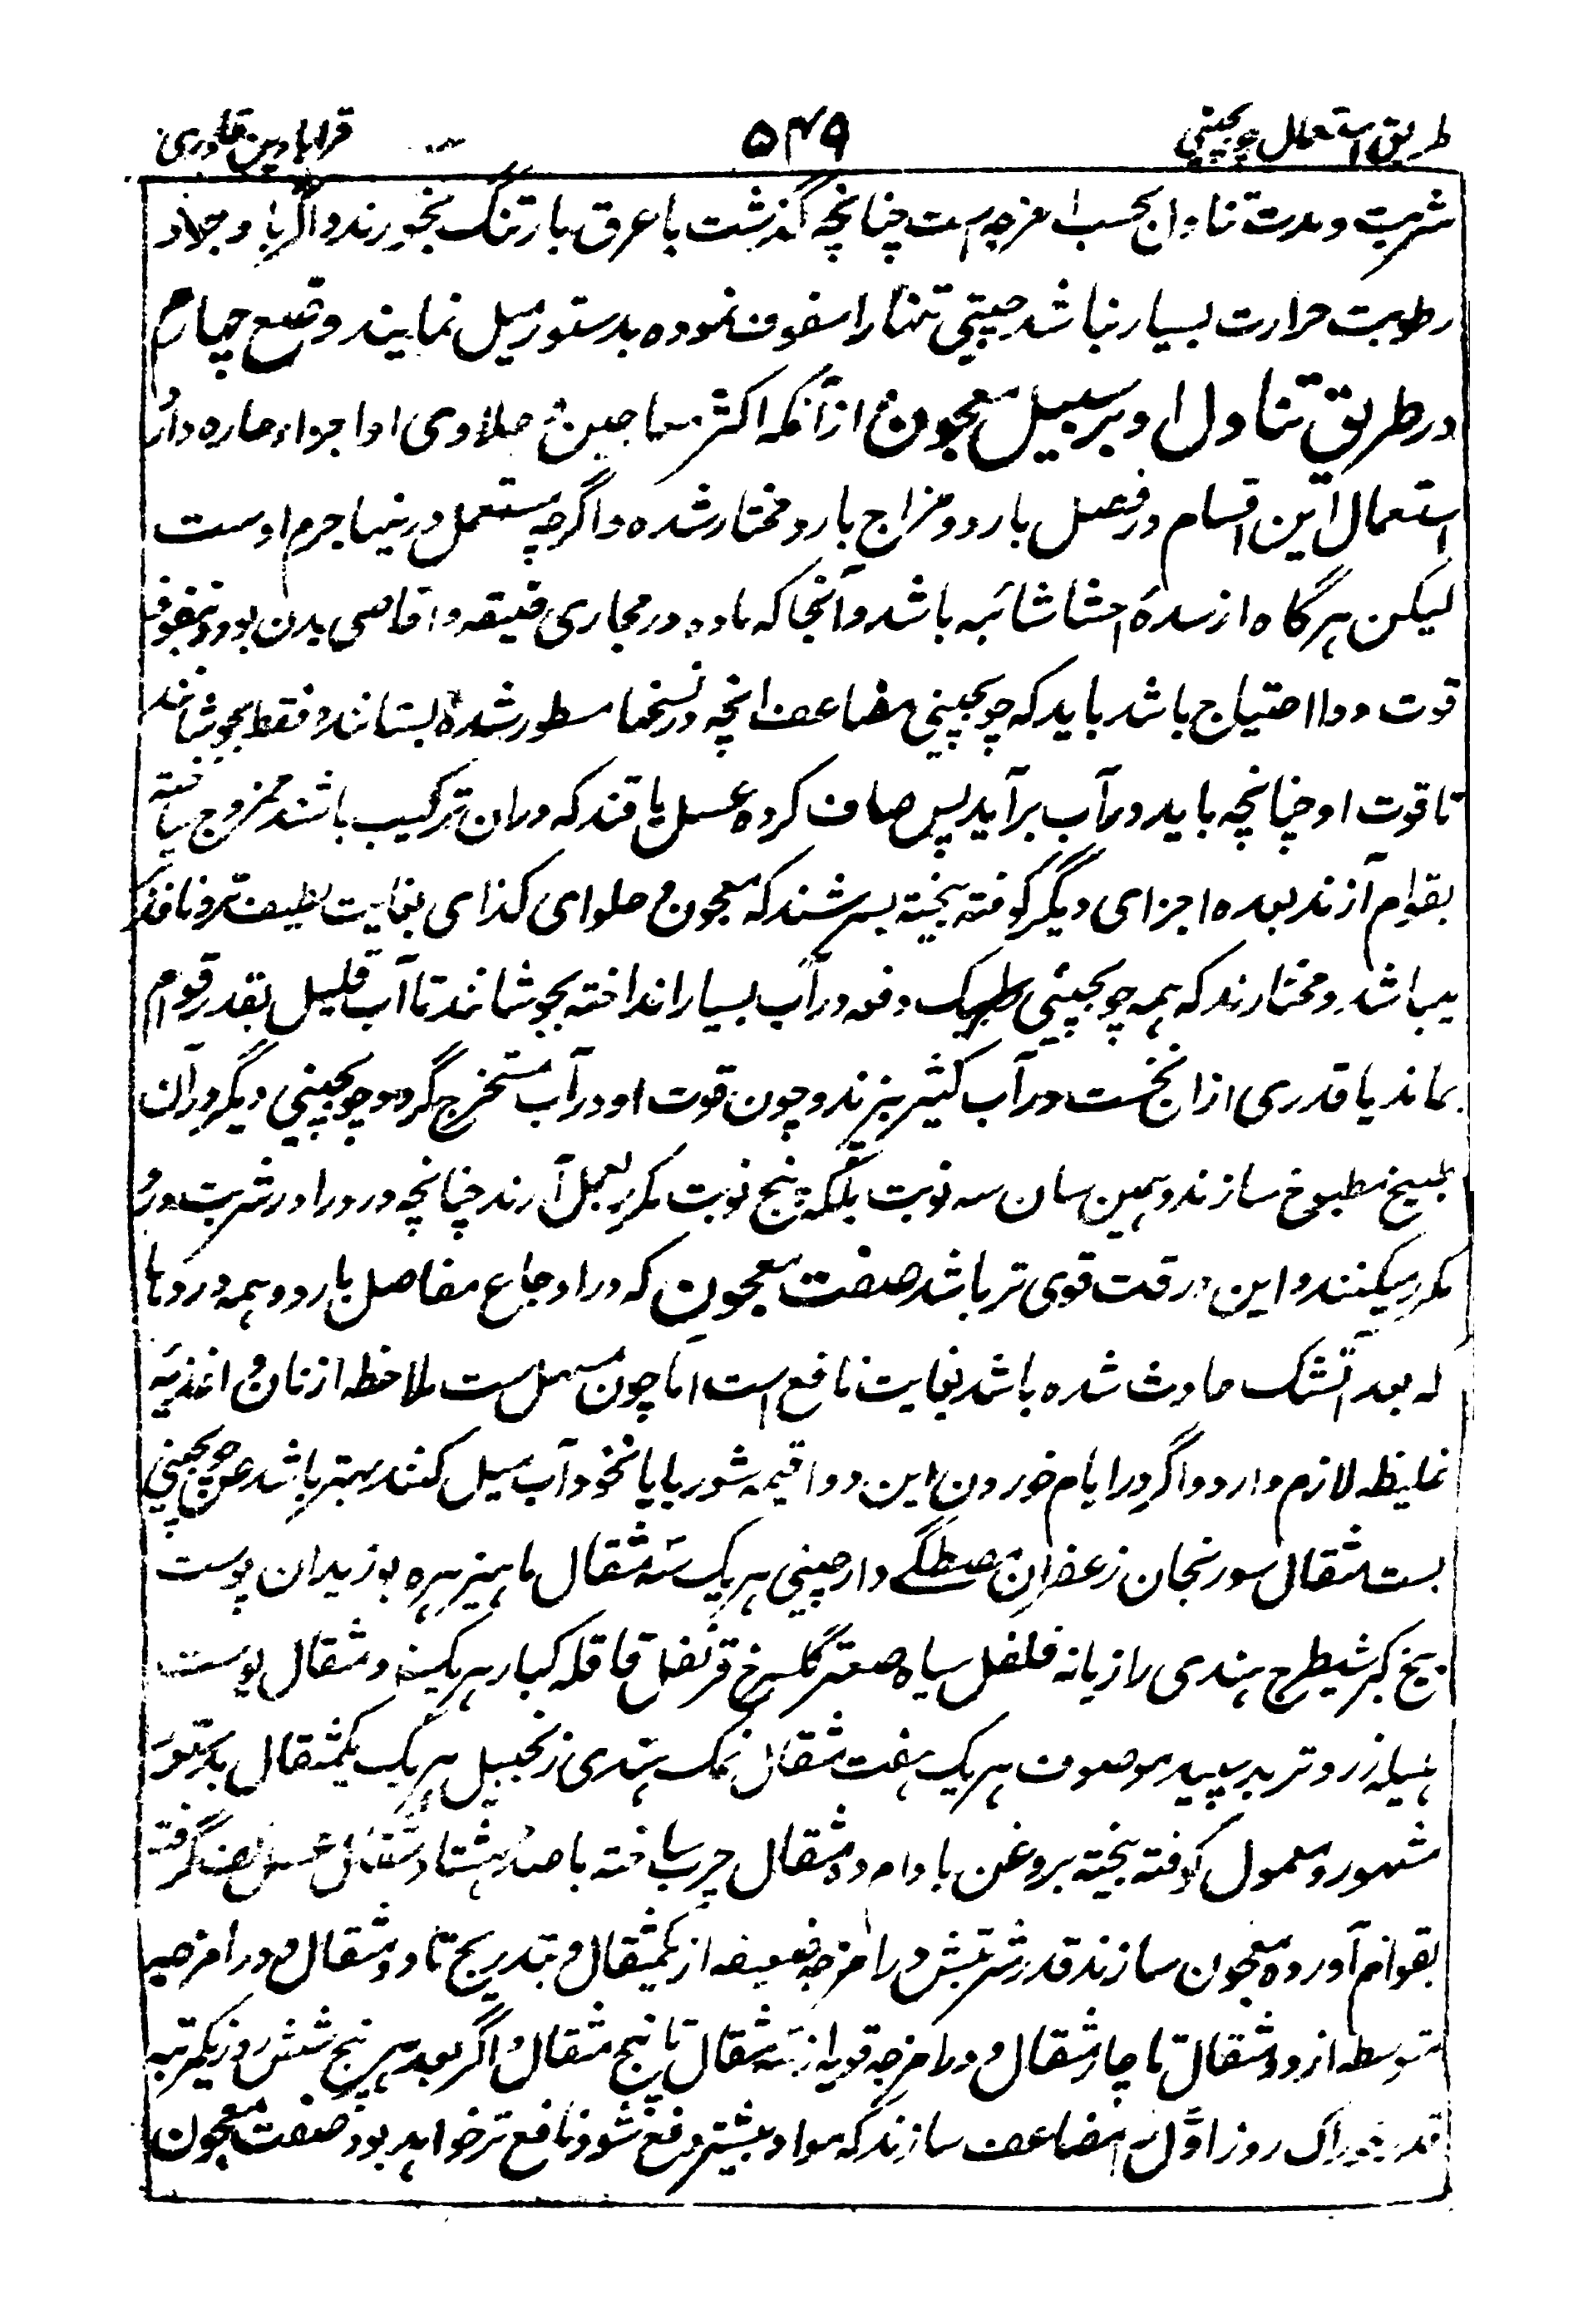 طریق استعمال چوبچینی ۵۴۹ قرابادین قادری
شربت و مدت تناول بحسب امزجه است چنانچه گذشت با عرق بارتنگ بخورند و اگر با وجود
رطوبت حرارت بسیار نباشد چینی تنها را سفوف نموده بدستور میل نمایند وضع چهارم
در طریق تناول او بر سبیل معجون از آنکه اکثر معاجین و حلاوی او اجزاء حاره دارد
استعمال این اقسام در فصل بارد و مزاج بارد مختار شده و اگرچه مستعمل درینها جرم اوست
لیکن هرگاه از سدهٔ احشا شائبه باشد و آنجا که ماده در مجاری ضیقه و اقاصی بدن بود و بنفوذ
قوت دوا احتیاج باشد باید که چوبچینی مضاعف انچه در نسخها مسطور شده بستانند و فقط بجوشانند
تا قوت او چنانچه باید در آب برآید پس صاف کرده عسل یا قند که دران ترکیب باشند ممزوج ساخته
بقوام آرند بعده اجزای دیگر کوفته بیخته بسرشند که معجون و حلوای کذای بغایت لطیف تر و نافذتر
میباشد و مختارند که همه چوبچینی یک دفعه در آب بسیار انداخته بجوشانند تا آب قلیل بقدر قوام
بماند یا قدری ازان نخست در آب کثیر بپزند و چون قوت او در آب مستخرج گردد چوبچینی دیگر در آن
طبیخ مطبوخ سازند و همین سان سه نوبت بلکه پنج نوبت مکرر بعمل آرند چنانچه ورد را در شربت ورد
مکرر میکنند و این در قوت قوی تر باشد صفت معجون که در اوجاع مفاصل بارد و همه دردها
که بعد آتشک حادث شده باشد بغایت نافع است اما چون مسهل ست ملاحظه از نان و اغذیه
غلیظه لازم دارد و اگر در ایام خوردن این دوا قیمه شوربا یا نخود آب میل کنند بهتر باشد چوبچینی
بست مثقال سورنجان زعفران مصطگے دارچینی هر یک سه مثقال ماهیزهره بوزیدان پوست
بیخ کبر شیطرج هندی رازیانه فلفل سیاه صعتر گلسرخ قرنفل قاقله کبار هریک دو مثقال پوست
هلیله زرد تربد سپید موصوف هر یک هفت مثقال نمک هندی زنجبیل هر یک یکمثقال بدستور
مشهور و معمول کوفته بیخته بروغن بادام ده مثقال چرب ساخته با صد و هشتاد مثقال عسل کف گرفته
بقوام آورده معجون سازند قدر شربتش در امزجه ضعیفه از یکمثقال و بتدریج تا دو مثقال و در امزجه
متوسطه از دو مثقال تا چار مثقال و در امزجه قویه از سه مثقال تا پنج مثقال و اگر بعد هر پنج شش روز یکمرتبه
قدر خوراک روز اول را مضاعف سازند که مواد بیشتر دفع شود و نافع تر خواهد بود صفت معجون